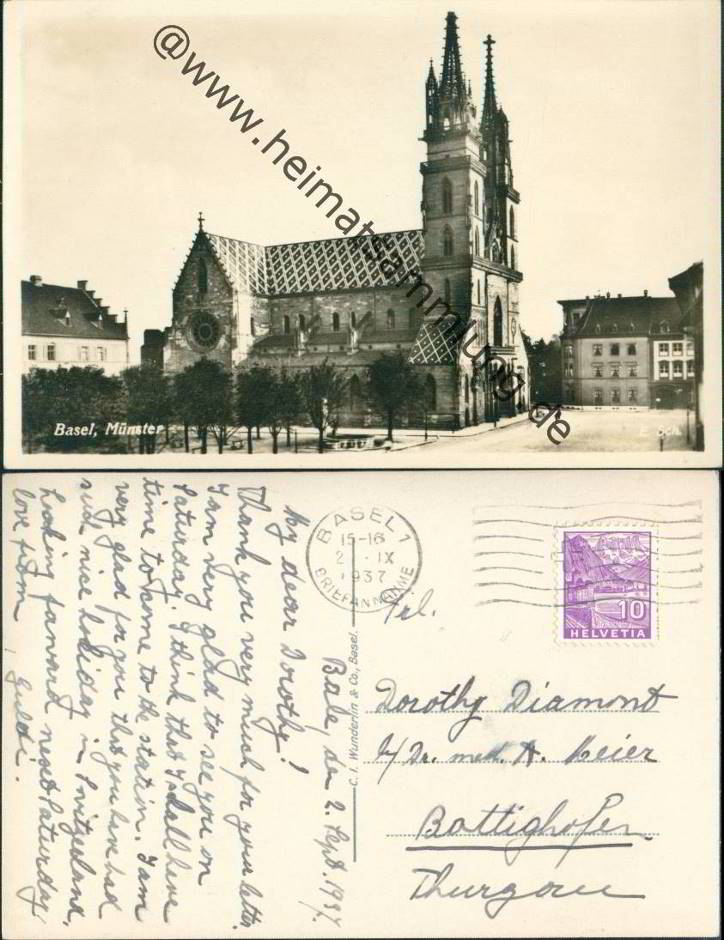 @www.heimatsammlung.de
Basel, Münster
BASEL 1
15-16
2. IX
1937
BRIEFANNAHME
10
HELVETIA
C. I. Wunderlin & Co., Basel.
Frl.
Dorothy Diamont
c/ Dr. med. A. Meier
Bottighofen
Thurgau
Bale, den 2. Sept. 1937.
My dear Dorothy!
Thank you very much for your letter.
I am very glad to see you on
Saturday. I think that I shall have
time to come to the station. I am
very glad for you that you have had
such nice holiday in Switzerland,
Looking forward next Saturday
love from